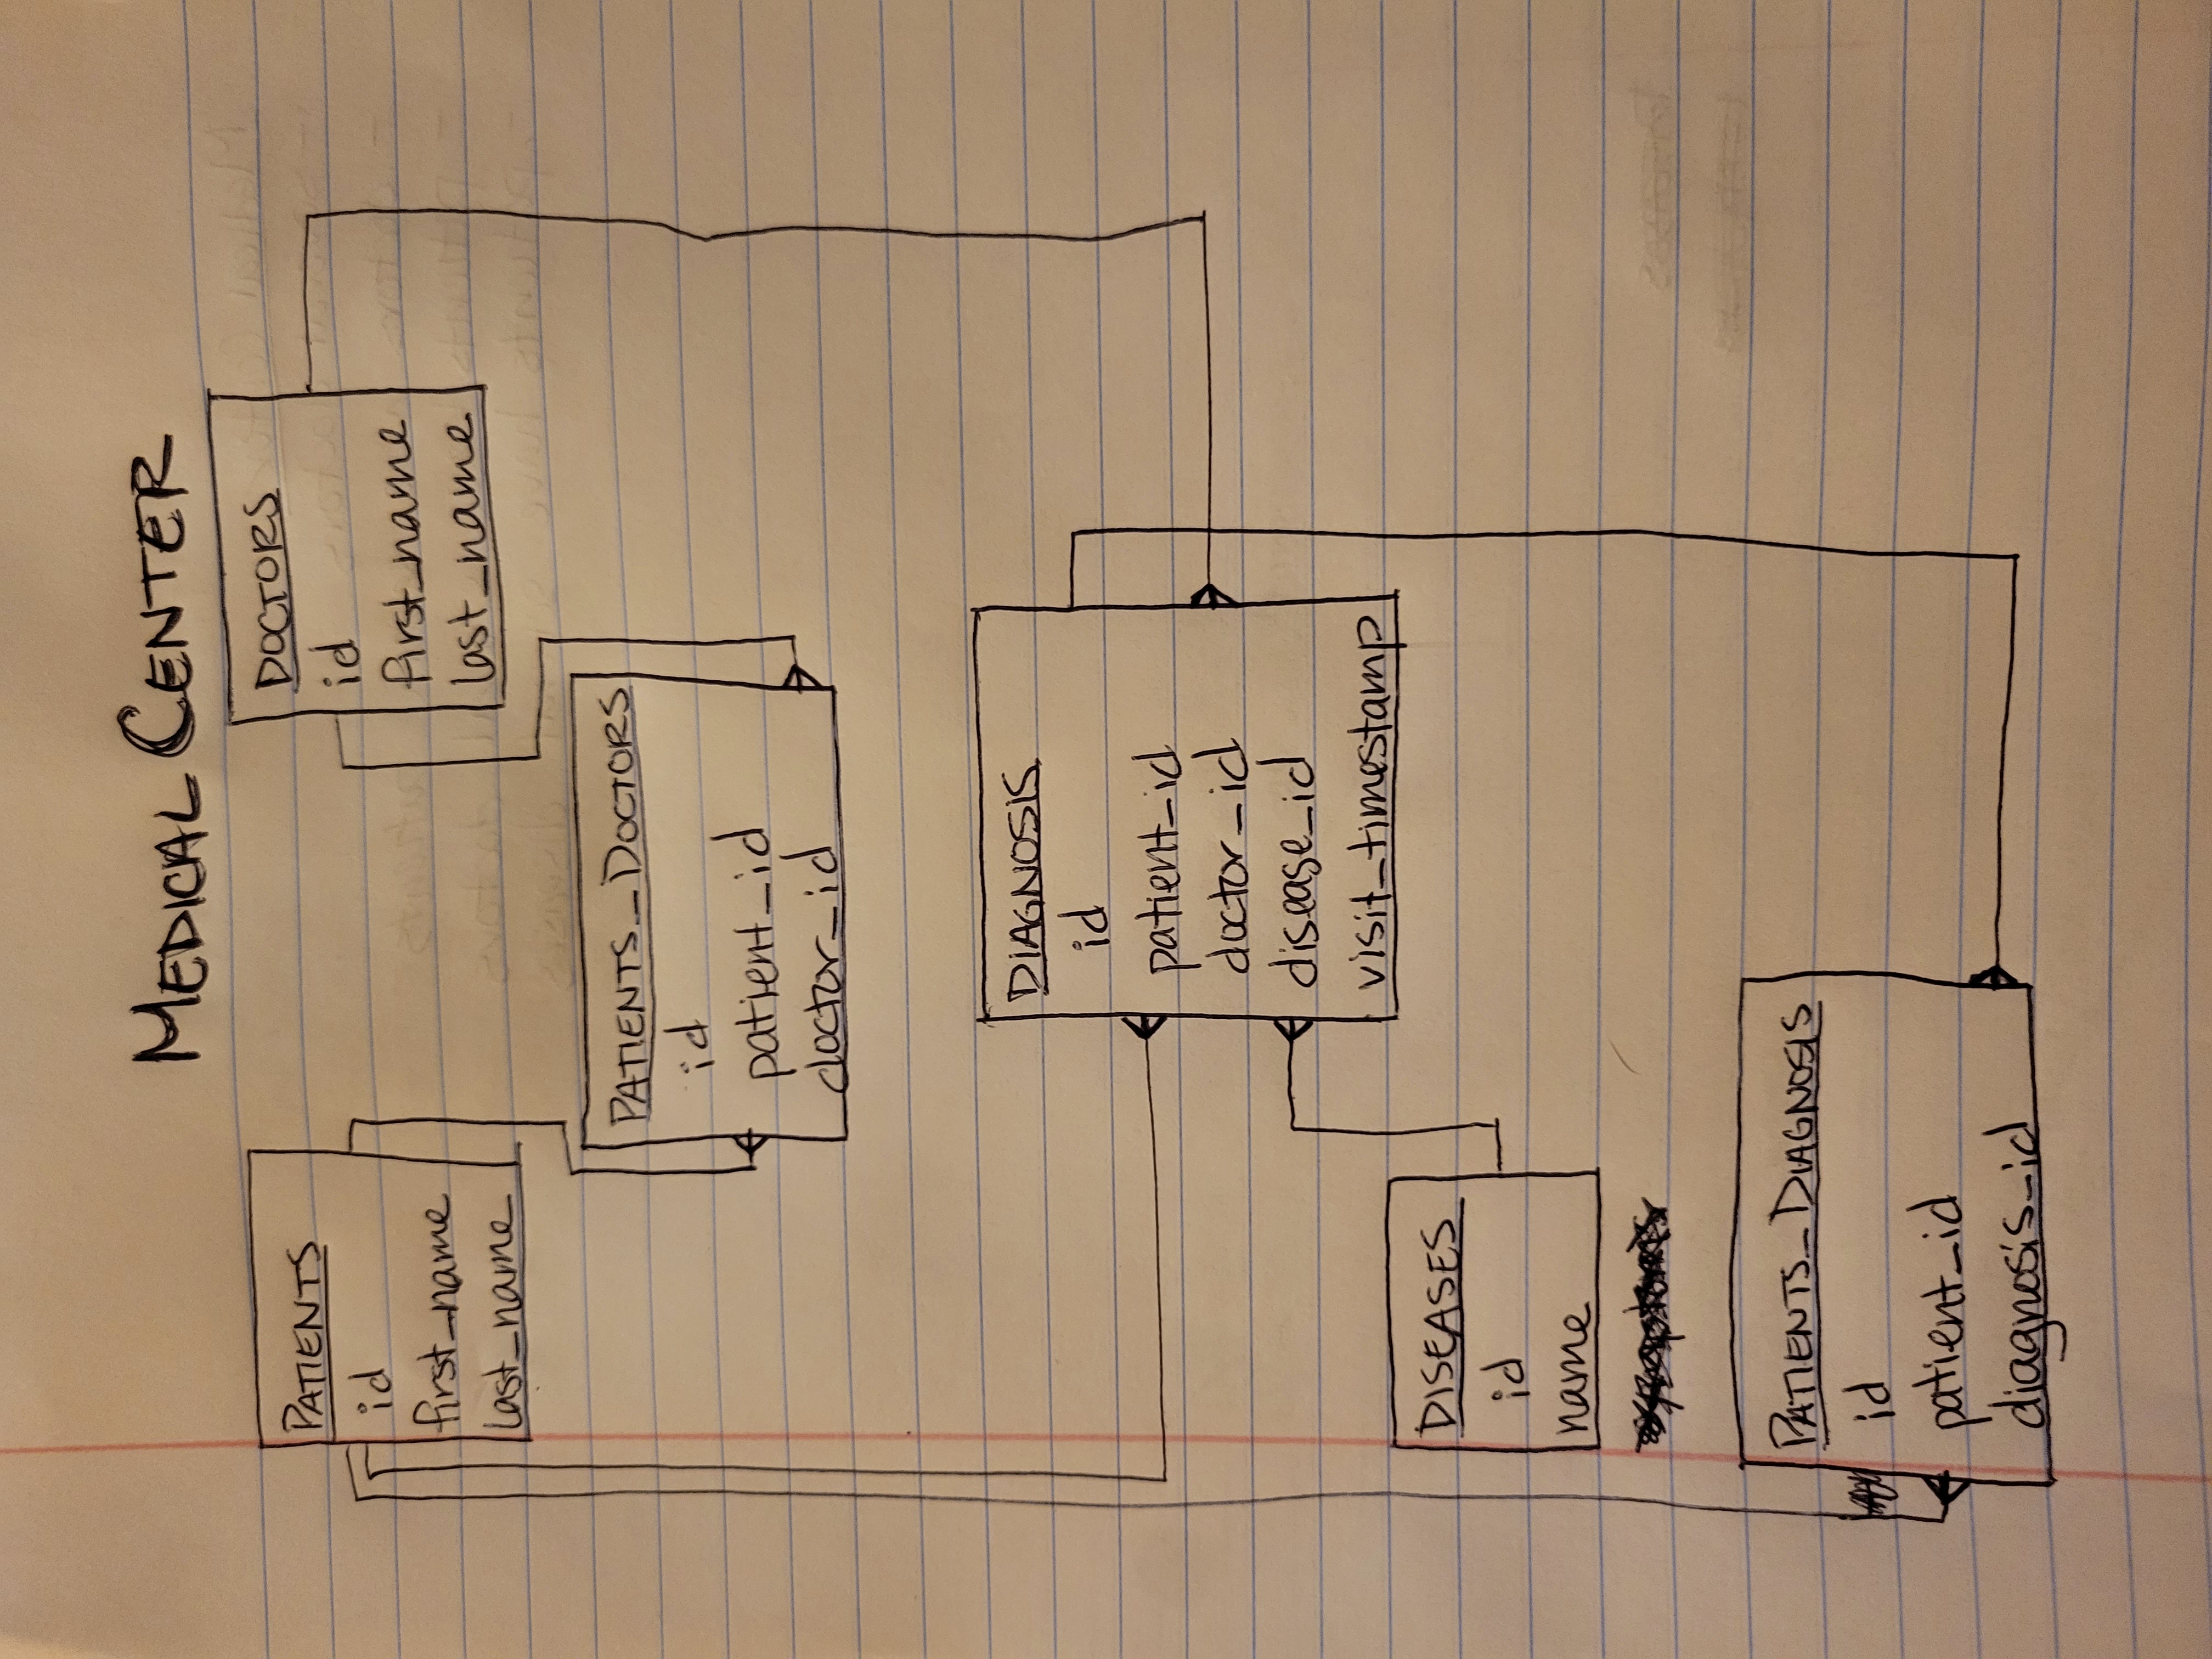 MEDICAL CENTER
PATIENTS
id
first_name
last_name
DOCTORS
id
first_name
last_name
PATIENTS_DOCTORS
id
patient_id
doctor_id
DIAGNOSIS
id
patient_id
doctor_id
disease_id
visit_timestamp
DISEASES
id
name
symptoms
PATIENTS_DIAGNOSIS
id
patient_id
diagnosis_id